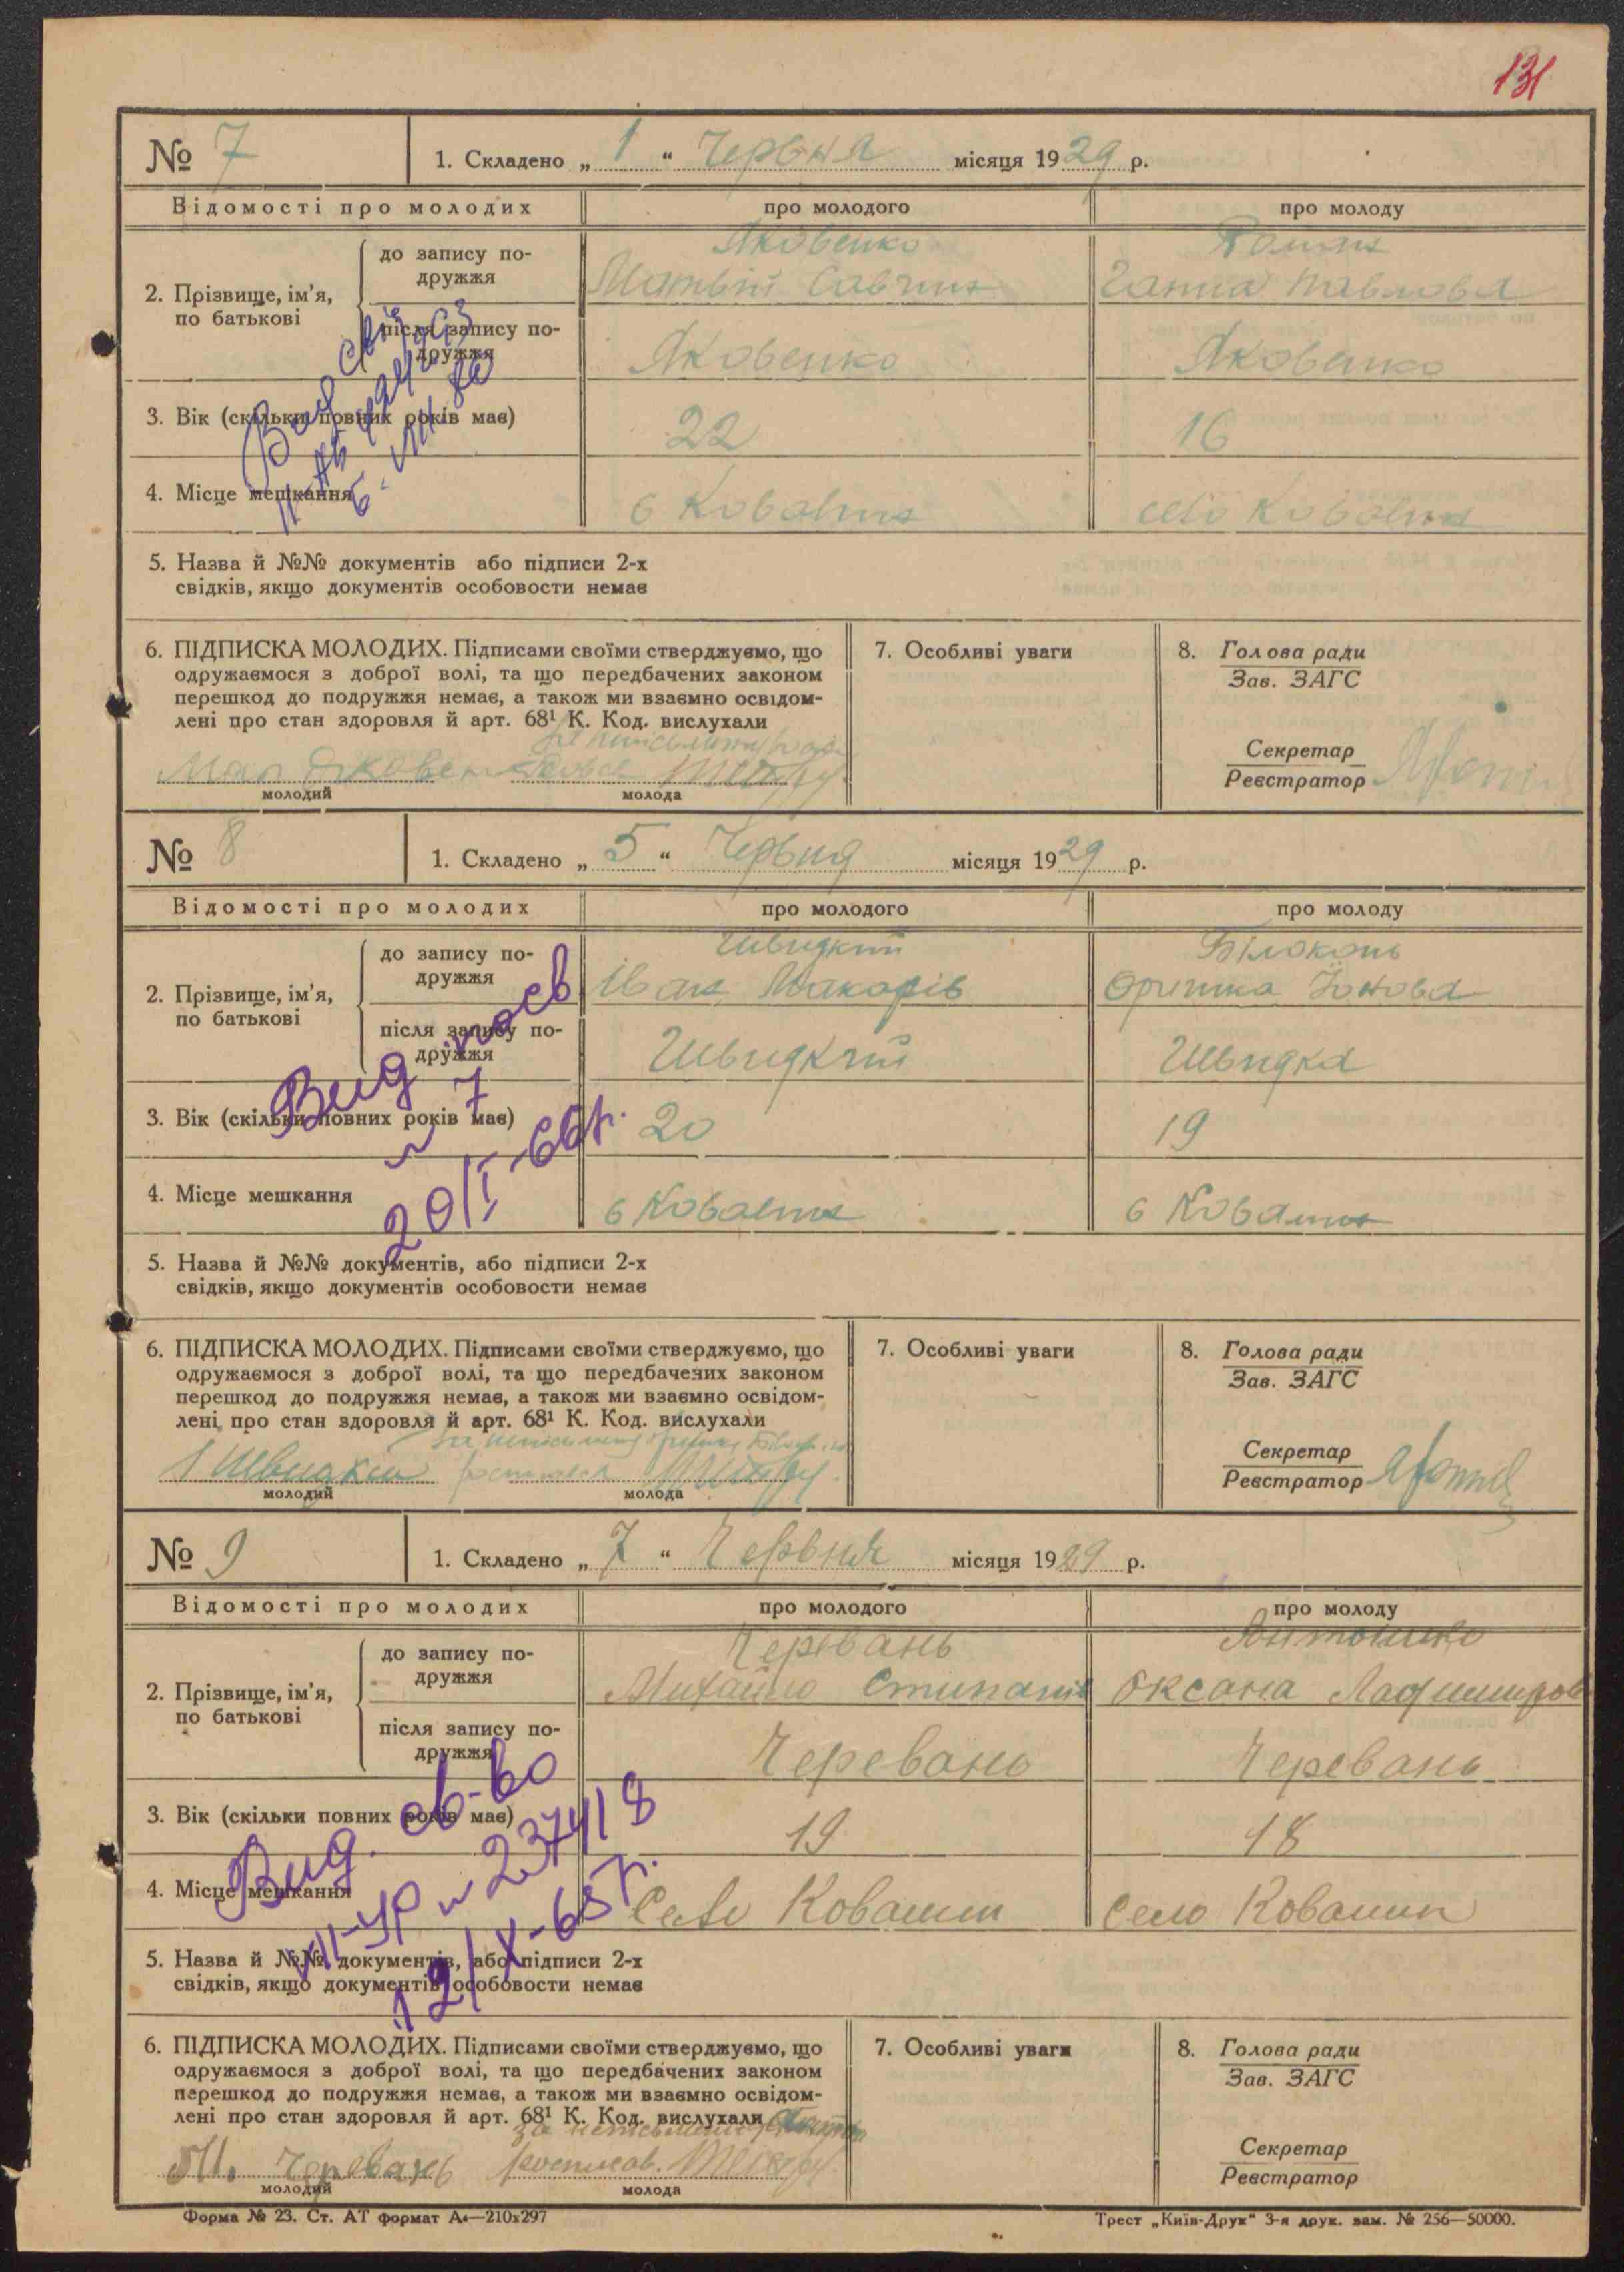 131
№ 7 1. Складено „ 1 “ Червня місяця 1929 р.
Відомості про молодих про молодого про молоду
2. Прізвище, ім’я, по батькові
до запису подружжя
Яковенко
Матвій Савчин
Ганна Павлова
після запису подружжя
Яковенко Яковенко
3. Вік (скільки повних років має) 22 16
4. Місце мешкання с Ковалин село Ковалин
5. Назва й №№ документів або підписи 2-х
свідків, якщо документів особовости немає
6. ПІДПИСКА МОЛОДИХ. Підписами своїми стверджуємо, що
одружаємося з доброї волі, та що передбачених законом
перешкод до подружжя немає, а також ми взаємно освідом-
лені про стан здоровля й арт. 68¹ К. Код. вислухали
молодий молода
7. Особливі уваги
8. Голова ради
Зав. ЗАГС
Секретар
Реєстратор
№ 8 1. Складено „ 5 “ Червня місяця 1929 р.
Відомості про молодих про молодого про молоду
2. Прізвище, ім’я, по батькові
до запису подружжя
Швидкий Білоконь
Іван Макарів Оришка Йонова
після запису подружжя
Швидкий Швидка
3. Вік (скільки повних років має) 20 19
Вид
20/I-66 г.
4. Місце мешкання с Ковалин с Ковалин
5. Назва й №№ документів, або підписи 2-х
свідків, якщо документів особовости немає
6. ПІДПИСКА МОЛОДИХ. Підписами своїми стверджуємо, що
одружаємося з доброї волі, та що передбачених законом
перешкод до подружжя немає, а також ми взаємно освідом-
лені про стан здоровля й арт. 68¹ К. Код. вислухали
І Швидкий
молодий молода
7. Особливі уваги
8. Голова ради
Зав. ЗАГС
Секретар
Реєстратор
№ 9 1. Складено „ 7 “ Червня місяця 1929 р.
Відомості про молодих про молодого про молоду
2. Прізвище, ім’я, по батькові
до запису подружжя
Черевань
Михайло Степанів Оксана
після запису подружжя
Черевань Черевань
3. Вік (скільки повних років має) 19 18
Вид. св-во
VII-УР № 237418
12/X-65 г.
4. Місце мешкання Село Ковалин Село Ковалин
5. Назва й №№ документів, або підписи 2-х
свідків, якщо документів особовости немає
6. ПІДПИСКА МОЛОДИХ. Підписами своїми стверджуємо, що
одружаємося з доброї волі, та що передбачених законом
перешкод до подружжя немає, а також ми взаємно освідом-
лені про стан здоровля й арт. 68¹ К. Код. вислухали
М. Черевань
молодий молода
7. Особливі уваги
8. Голова ради
Зав. ЗАГС
Секретар
Реєстратор
Форма № 23. Ст. АТ формат А4—210x297 Трест „Київ-Друк“ 3-я друк. зам. № 256—50000.